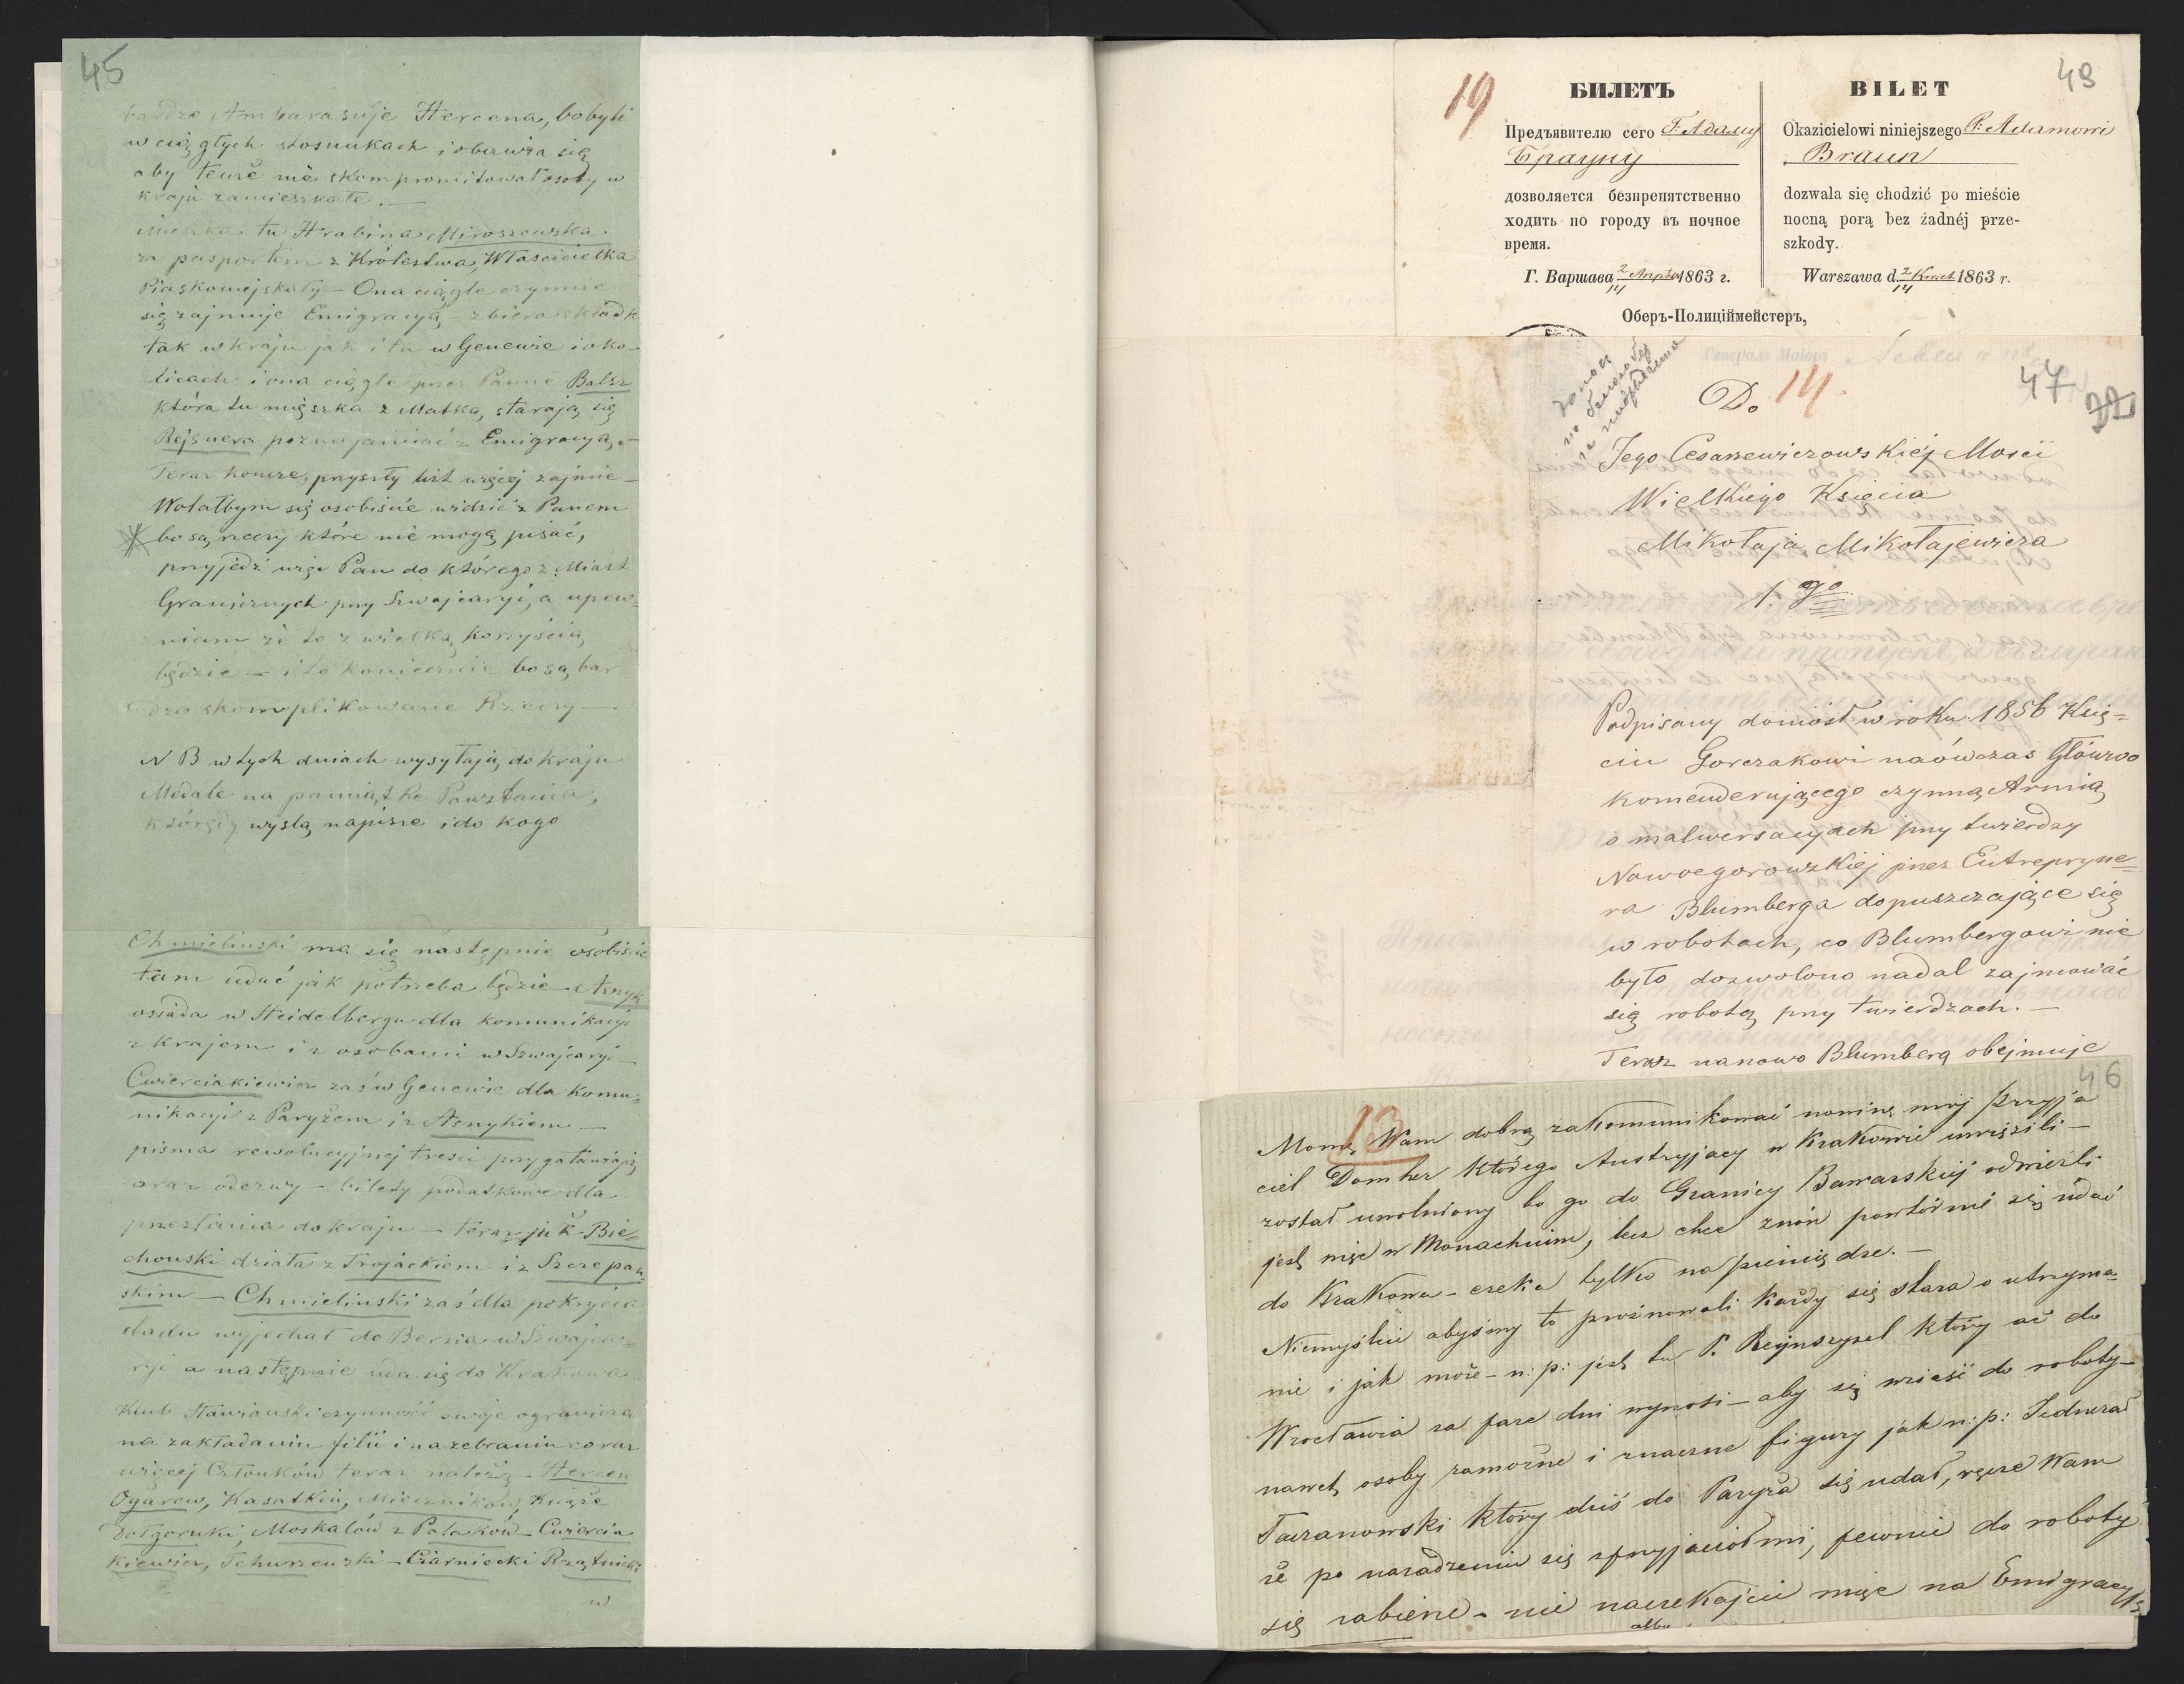 45
bardzo Ambarasuje Hercena, bo byli
w ciągłych stosunkach i obawia się
aby tenże nie skompromitował osoby w
kraju zamieszkałe. —
Mieszka tu Hrabina Miroszewska
za pasportem z Królestwa, Właścicielka
Piaskowejskały – Ona ciągle czynnie
się zajmuje Emigracyą – zbiera składk
tak w kraju jak i tu w Genewie i oko-
licach i ona ciągle przez Pannę
która tu mięszka z Matką, starają się
Rejsnera poznajamiać z Emigracyą. —
Teraz kończę, przyszły list więcej zajmie –
Wolałbym się osobiście widzić z Panem
bo są rzeczy które nie mogę pisać,
przyjedź więc Pan do którego z Miast
Granicznych przy Szwajcaryi, a upew-
niam że to z wielką korzyścią
będzie – i to koniecznie bo są bar
dzo skomplikowane Rzeczy —
N B w tych dniach wysyłają do kraju
Medale na pamiątkę Powstania,
którędy wyślą napiszę i do kogo
Chmieliński ma się następnie osobiście
tam udać jak potrzeba będzie – Asnyk
osiada w Heidelbergu dla komunikacyi
z krajem i z osobami w Szwajcaryi –
Cwierciakiewicz zaś w Genewie dla komu=
nikacyi z Paryżem i z Asnykiem —
pisma rewolucyjnej treści przygotowują
oraz odezwy – bilety podatkowe dla
przesłania do kraju – teraz już Bie=
chouski działa z Trojackiem i z Szczepań=
skim – Chmieliński zaś dla pokrycia
śladu wyjechał do Berna w Szwajca=
ryi a następnie uda się do Krakowa
Klub Sławiański czynność swoje ogranicza
na zakładaniu filii i na zebraniu coraz
więcej Członków teraz należą – Hercen
Ogarew, Kasatkin, Miecznikow, Książe
Dołgoruki, Moskalów z Polaków – Cwiercia
kiewicz, Tchurzewski – Czarniecki Rząśnicki
w
19
48
БИЛЕТЪ
Предъявителю сего Г. Адаму
Брауну
дозволяется безпрепятственно
ходить по городу въ ночное
время.
Г. Варшава 2/14 Апрѣля 1863 г.
BILET
Okazicielowi niniejszego P. Adamowi
Braun
dozwala się chodzić po mieście
nocną porą bez żadnéj prze-
szkody.
Warszawa d. 2/14 Kwiet 1863 r.
Оберъ-Полиціймейстеръ,
Генералъ Маіоръ
14
47
Do
Jego Cesarzewiczowskiéj Mości
Wielkiego Księcia
Mikołaja Mikołajewicza
1.go
Podpisany doniósł w roku 1856 Księ=
ciu Gorczakowi naówczas Główno
komenderującego czynną Armią
o malwersacyach przy twierdzy
Nowoegorowskiéj przez Entrepryne=
ra Blumberga dopuszczające się
w robotach, co Blumbergowi nie
było dozwolono nadal zajmować
się robotą przy twierdzach. —
Teraz nanowo Blumberg obejmuje
46
13
Mogę Wam dobrą zakomunikować nowinę mój przyja
ciel Domher którego Austryjacy w Krakowie uwięzili –
został uwolniony bo go do Granicy Bawarskiej odwieźli
jest więc w Monachium, lecz chce znów powtórnie się udać
do Krakowa – czeka tylko na pieniądze. –
Niemyślcie abyśmy tu proźnowali każdy się stara o utrzyma=
nie i jak może – n: p: jest tu P. Rejnszysel który aż do
Wrocławia za parę dni wynosi – aby się wzieść do roboty –
nawet osoby zamożne i znaczne figury jak n: p: Jednerał
Taczanowski który dziś do Paryża się udał, ręcze Wam
że po naradzeniu się z przyjaciołmi, pewnie do roboty
się zabierze – nie naczekajcie więc na Emigracyą
albo